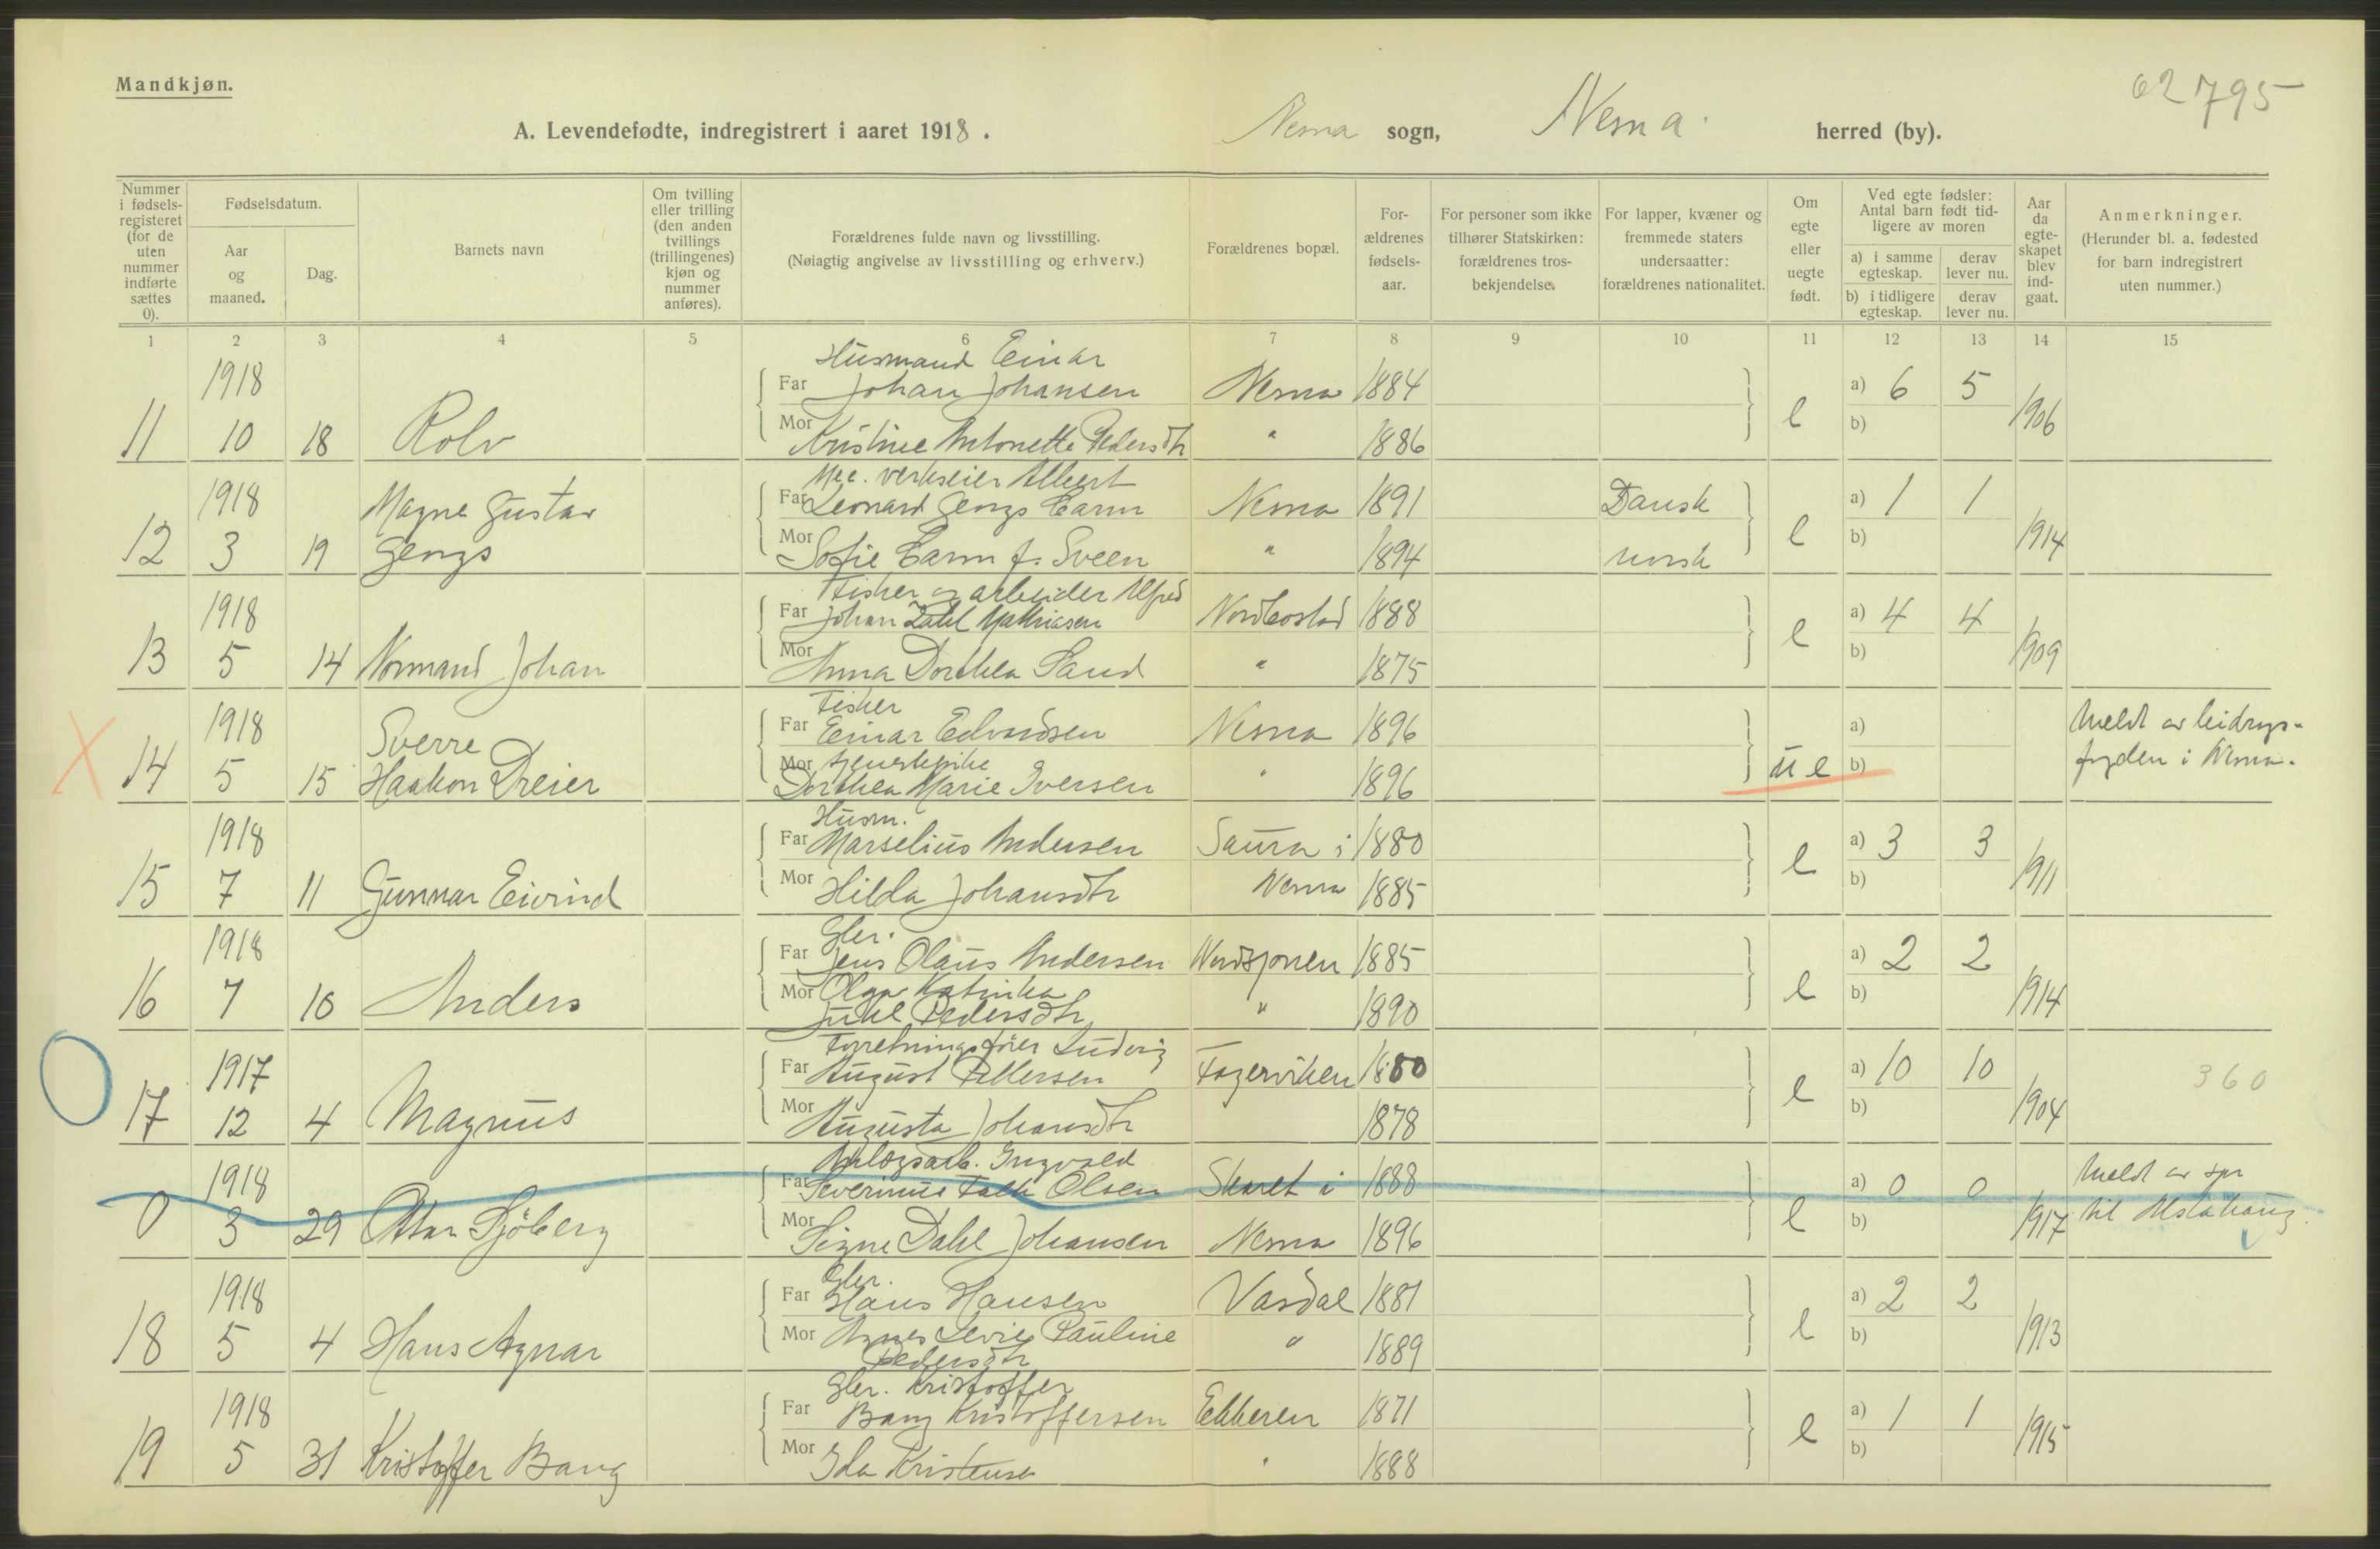 Mandkjøn.
62 795
A. Levendefødte, indregistrert i aaret 1918.
Nesna sogn, Nesna herred (by).
Nummer i fødselsregisteret (for de uten nummer indførte sættes 0).
Fødselsdatum.
Aar og maaned.
Dag.
Barnets navn
Om tvilling eller trilling (den anden tvillings (trillingenes) kjøn og nummer anføres).
Forældrenes fulde navn og livsstilling.
(Nøiagtig angivelse av livsstilling og erhverv.)
Forældrenes bopæl.
For-ældrenes fødsels-aar.
For personer som ikke tilhører Statskirken: forældrenes tros-bekjendelse.
For lapper, kvæner og fremmede staters undersaatter: forældrenes nationalitet.
Om egte eller uegte født.
Ved egte fødsler: Antal barn født tid-ligere av moren
a) i samme egteskap.
derav lever nu.
b) i tidligere egteskap.
derav lever nu.
Aar da egte-skapet blev ind-gaat.
Anmerkninger.
(Herunder bl. a. fødested for barn indregistrert uten nummer.)
1 2 3 4 5 6 7 8 9 10 11 12 13 14 15
Husmand Einar
1918 Far Johan Johansen Nesna 1884 a) 6 5
11 10 18 Rolv Mor Kristine Antonette Pedersdtr " 1886 e b) 1906
Mec. verkseier Albert
1918 Magne Gustav Far Leonard Georgs Carm Nesna 1891 Dansk a) 1 1
12 3 19 Georgs Mor Sofie Carm f. Sveen " 1894 norsk e b) 1914
Fisker og arbeider Alfred
1918 Far Johan Dahl Mathiasen 1888 a) 4 4
13 5 14 Normand Johan Mor Anna Dorthea Sand " 1875 e b) 1909
Fisker
1918 Sverre Far Einar Edvardsen Nesna 1896 a) Meldt av bidrags-
14 5 15 Haakon Dreier Mor tjenestepike " ue b) fogden i Nesna.
Dorthea Marie Iversen 1896
Husm.
1918 Far Marselius Andersen Saura i 1880 a) 3 3
15 7 11 Gunnar Eivind Mor Hilda Johansdtr Nesna 1885 e b) 1911
Gbr.
1918 Far Jens Olaus Andersen 1885 a) 2 2
16 7 10 Anders Mor Olga Katinka " e b) 1914
Juhl Pedersdtr 1890
Forretningsfører Ludvig
1917 Far August Pettersen Fagerviken 1880 a) 10 10 360
17 12 4 Magnus Mor Augusta Johansdtr 1878 e b) 1904
Anlægsarb. Ingvald
1918 Far Severinus Falch Olsen Skaret i 1888 a) 0 0 Meldt av spr
0 3 29 Ottar Sjöberg Mor Signe Dahl Johansen Nesna 1896 e b) 1917 til Alstahaug.
Gbr.
1918 Far Hans Hansen Vasdal 1881 a) 2 2
18 5 4 Hans Agnar Mor Agnes Pauline " e b) 1913
Pedersdtr 1889
Gbr. Kristoffer
1918 Far Bang Kristoffersen 1871 a) 1 1
19 5 31 Kristoffer Bang Mor Ida Kristensen " 1888 e b) 1915